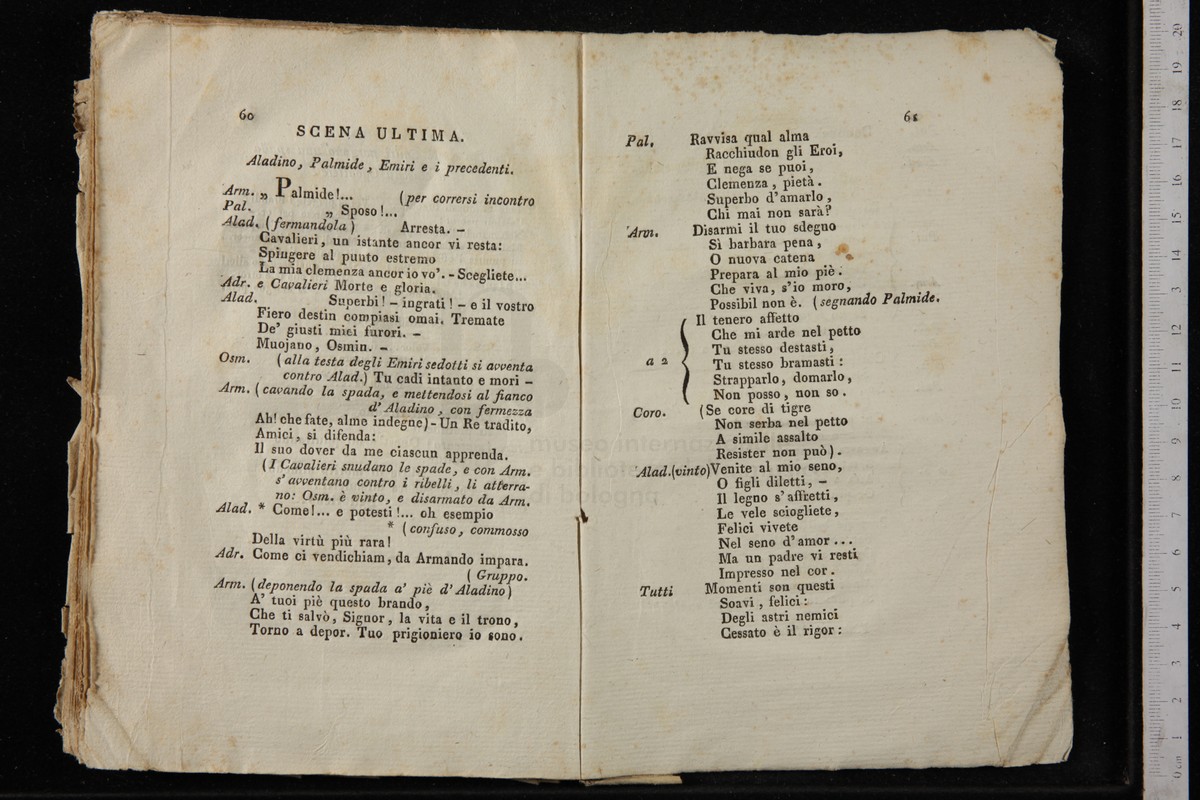 60
SCENA ULTIMA.
Aladino, Palmide, Emiri e i precedenti.
Arm. „ Palmide!... (per corrersi incontro
Pal. „ Sposo!...
Alad. (fermandola) Arresta. –
Cavalieri, un istante ancor vi resta:
Spingere al punto estremo
La mia clemenza ancor io vo'. - Scegliete...
Adr. e Cavalieri Morte e gloria.
Alad. Superbi! – ingrati! – e il vostro
Fiero destin compiasi omai. Tremate
De' giusti miei furori. –
Muojano, Osmin. –
Osm. (alla testa degli Emiri sedotti si avventa
contro Alad.) Tu cadi intanto e mori –
Arm. (cavando la spada, e mettendosi al fianco
d'Aladino, con fermezza
Ah! che fate, alme indegne) - Un Re tradito,
Amici, si difenda:
Il suo dover da me ciascun apprenda.
(I Cavalieri snudano le spade, e con Arm.
s'avventano contro i ribelli, li atterra-
no: Osm. è vinto, e disarmato da Arm.
Alad. * Come!... e potesti!... oh esempio
* (confuso, commosso
Della virtù più rara!
Adr. Come ci vendichiam, da Armando impara.
(Gruppo.
Arm. (deponendo la spada a' piè d'Aladino)
A' tuoi piè questo brando,
Che ti salvò, Signor, la vita e il trono,
Torno a depor. Tuo prigioniero io sono.
61
Pal. Ravvisa qual alma
Racchiudon gli Eroi,
E nega se puoi,
Clemenza, pietà.
Superbo d'amarlo,
Chi mai non sarà?
Arm. Disarmi il tuo sdegno
Sì barbara pena,
O nuova catena
Prepara al mio piè.
Che viva, s'io moro,
Possibil non è. (segnando Palmide.
Il tenero affetto
Che mi arde nel petto
Tu stesso destasti,
a 2 Tu stesso bramasti:
Strapparlo, domarlo,
Non posso, non so.
Coro. (Se core di tigre
Non serba nel petto
A simile assalto
Resister non può).
Alad. (vinto) Venite al mio seno,
O figli diletti, –
Il legno s'affretti,
Le vele sciogliete,
Felici vivete
Nel seno d'amor...
Ma un padre vi resti
Impresso nel cor.
Tutti Momenti son questi
Soavi, felici:
Degli astri nemici
Cessato è il rigor:
museo internaz
e bibliote
di bologna